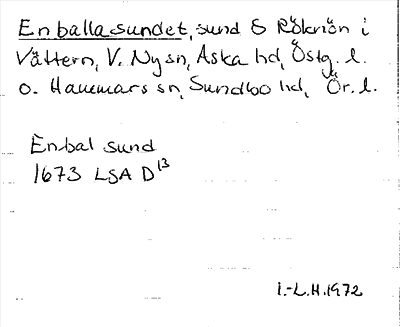 Enballasundet, sund S Röknön i
Vättern, V. Ny sn, Aska hd, Östg. l.
o. Hammars sn, Sundbo hd, Ör. l.
Enbal sund
1673 LSA D¹³
I.-L.H. 1972